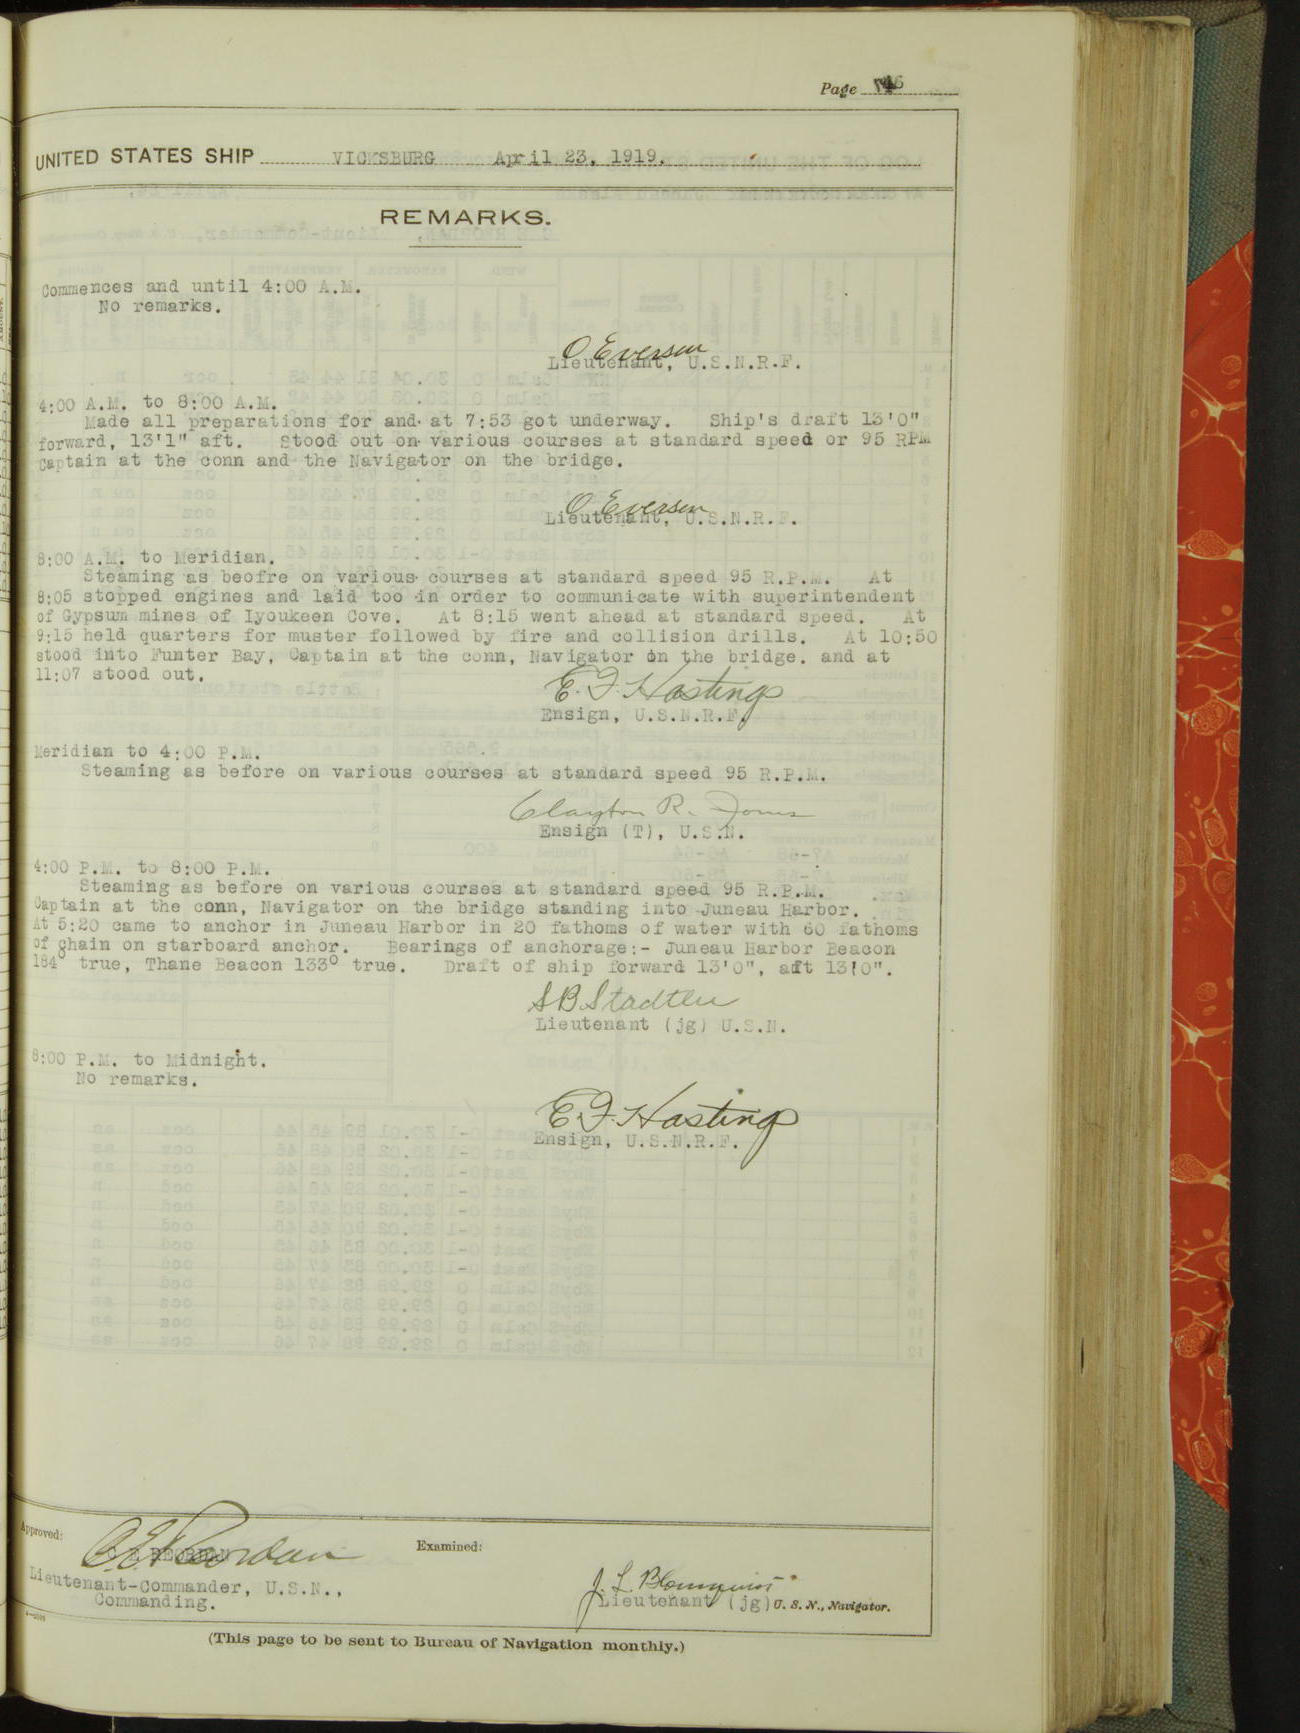 Page
UNITED STATES SHIP VICKSBURG April 23, 1919.
REMARKS.
Commences and until 4:00 A.M.
No remarks.
O Everson
Lieutenant, U.S.N.R.F.
4:00 A.M. to 8:00 A.M.
Made all preparations for and at 7:53 got underway. Ship's draft 13'0"
forward, 13'1" aft. Stood out on various courses at standard speed or 95 RPM
Captain at the conn and the Navigator on the bridge.
O Everson
Lieutenant, U.S.N.R.F.
8:00 A.M. to Meridian.
Steaming as beofre on various courses at standard speed 95 R.P.M. At
8:05 stopped engines and laid too in order to communicate with superintendent
of Gypsum mines of Iyoukeen Cove. At 8:15 went ahead at standard speed. At
9:15 held quarters for muster followed by fire and collision drills. At 10:50
stood into Funter Bay, Captain at the conn, Navigator on the bridge. and at
11:07 stood out.
E. F. Hastings
Ensign, U.S.N.R.F.
Meridian to 4:00 P.M.
Steaming as before on various courses at standard speed 95 R.P.M.
Clayton R. Jones
Ensign (T), U.S.N.
4:00 P.M. to 8:00 P.M.
Steaming as before on various courses at standard speed 95 R.P.M.
Captain at the conn, Navigator on the bridge standing into Juneau Harbor.
At 5:20 came to anchor in Juneau Harbor in 20 fathoms of water with 60 fathoms
of chain on starboard anchor. Bearings of anchorage:- Juneau Harbor Beacon
184° true, Thane Beacon 133° true. Draft of ship forward 13'0", aft 13'0".
S B Stadtler
Lieutenant (jg) U.S.N.
8:00 P.M. to Midnight.
No remarks.
E. F. Hastings
Ensign, U.S.N.R.F.
Approved:
C E Reordan
C E REORDAN
Lieutenant-Commander, U.S.N.,
Commanding.
Examined:
J. L. Blomquist
Lieutenant (jg) U. S. N., Navigator.
(This page to be sent to Bureau of Navigation monthly.)